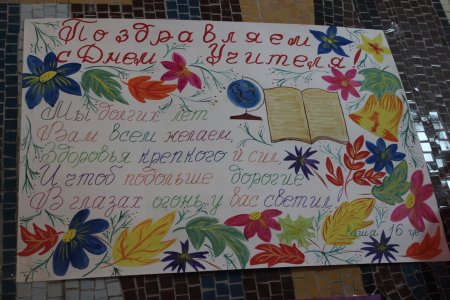 Поздравляем
с Днем Учителя!
Мы долгих лет
Вам всем желаем,
Здоровья крепкого и сил,
И чтоб подольше дорогие
В глазах огонь у вас светил!
Ваша 16 гр.